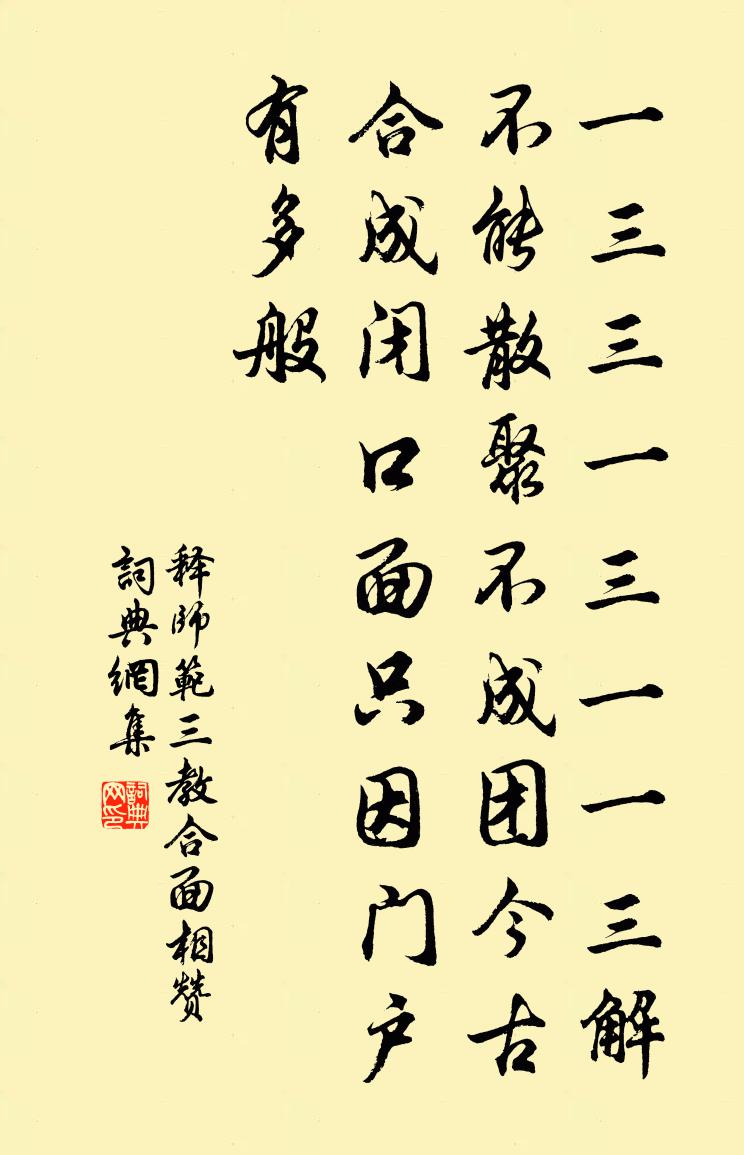 一三三一三一一三解
不能散聚不成团今古
合成闭口面只因门户
有多般
释师範三教合面相赞
詞典網集
詞典网印